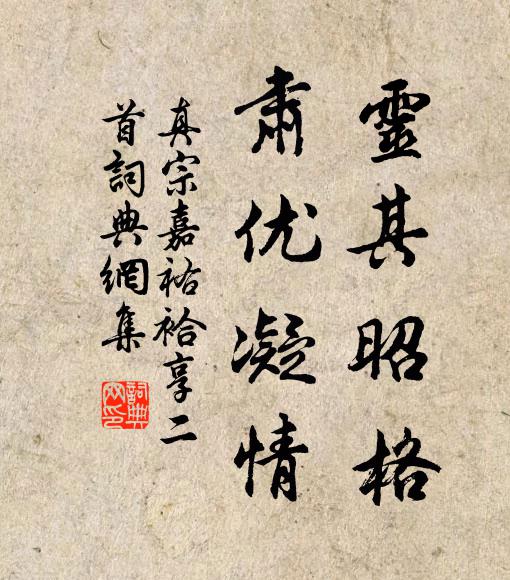 靈其昭格
肅优凝情
真宗嘉祐祫享二
首詞典網集
詞典網印